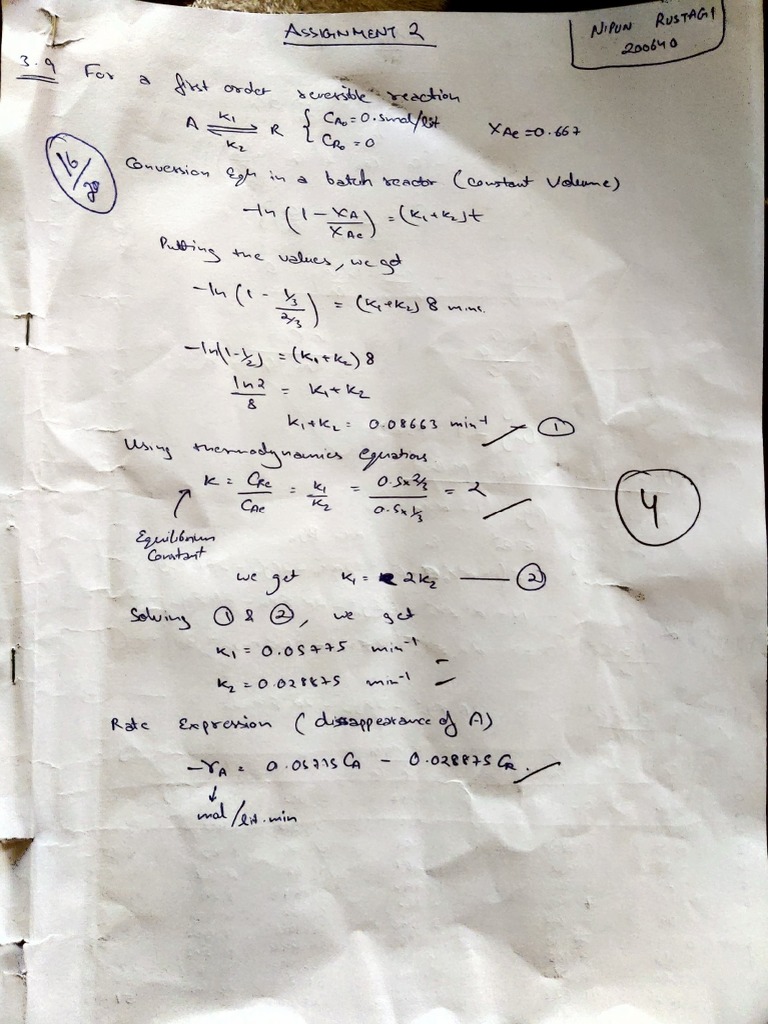 ASSIGNMENT 2
NIPUN RUSTAGI
200640
3.9 For a first order reversible reaction
A ⇌ R { CA₀ = 0.5 mol/lit XAe = 0.667
K₁
K₂
CR₀ = 0
16/20
Conversion Eqn in a batch reactor (constant Volume)
-ln (1 - XA/XAe) = (K₁+K₂)t
Putting the values, we get
-ln (1 - (1/3)/(2/3)) = (K₁+K₂) 8 mins.
-ln(1-1/2) = (K₁+K₂) 8
ln2/8 = K₁+K₂
K₁+K₂ = 0.08663 min⁻¹ — ①
Using thermodynamics equations
K = CRe/CAe = K₁/K₂ = (0.5×2/3)/(0.5×1/3) = 2
4
Equilibrium
Constant
we get K₁ = 2K₂ — ②
Solving ① & ②, we get
K₁ = 0.05775 min⁻¹
K₂ = 0.028875 min⁻¹
Rate Expression (disappearance of A)
-rA = 0.05775 CA - 0.028875 CR
mol/lit.min